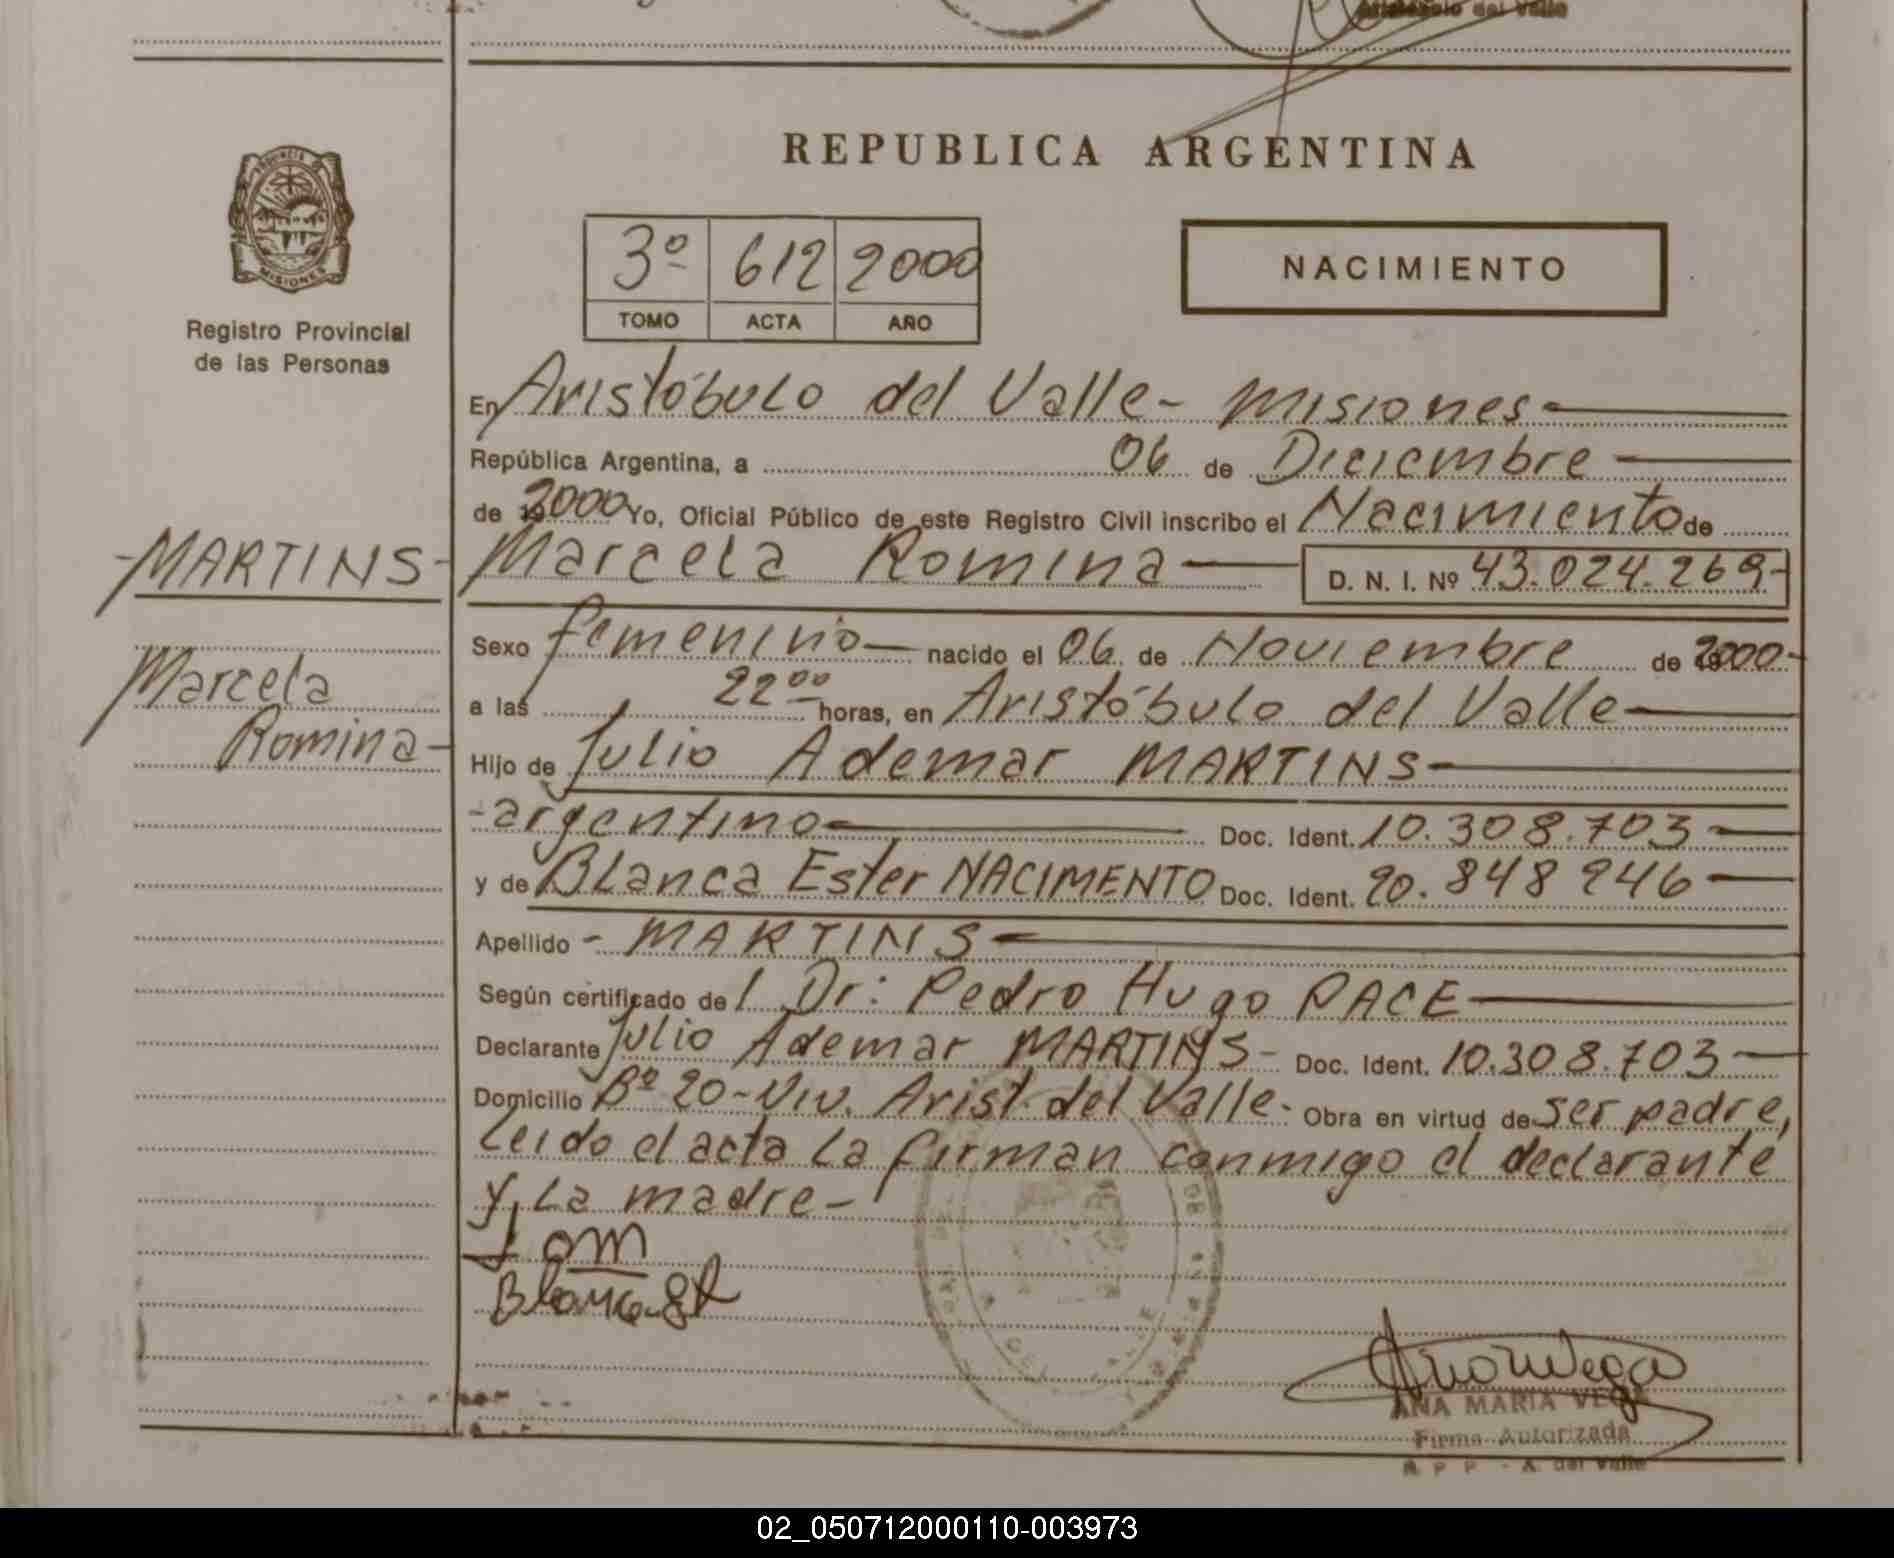 Aristóbulo del Valle
REPUBLICA ARGENTINA
PROVINCIA DE
MISIONES
3º 612 2000
TOMO ACTA AÑO
NACIMIENTO
Registro Provincial
de las Personas
En Aristóbulo del Valle - Misiones
República Argentina, a 06 de Diciembre
de 2000 Yo, Oficial Público de este Registro Civil inscribo el Nacimiento de
- MARTINS - Marcela Romina D. N. I. Nº 43.024.269-
Sexo femenino nacido el 06 de Noviembre de 2000-
Marcela
Romina -
a las 22 00 horas, en Aristóbulo del Valle
Hijo de Julio Ademar MARTINS
- argentino Doc. Ident. 10.308.703
y de Blanca Ester NACIMENTO Doc. Ident. 20.848 946
Apellido - MARTINS
Según certificado de l Dr: Pedro Hugo PACE
Declarante Julio Ademar MARTINS - Doc. Ident. 10.308.703
Domicilio Bº 20-Viv. Arist. del Valle - Obra en virtud de ser padre,
leido el acta la firman conmigo el declarante
y, la madre -
ANA MARIA VEGA
Firma Autorizada
R. P. P. - A. del Valle
02_050712000110-003973